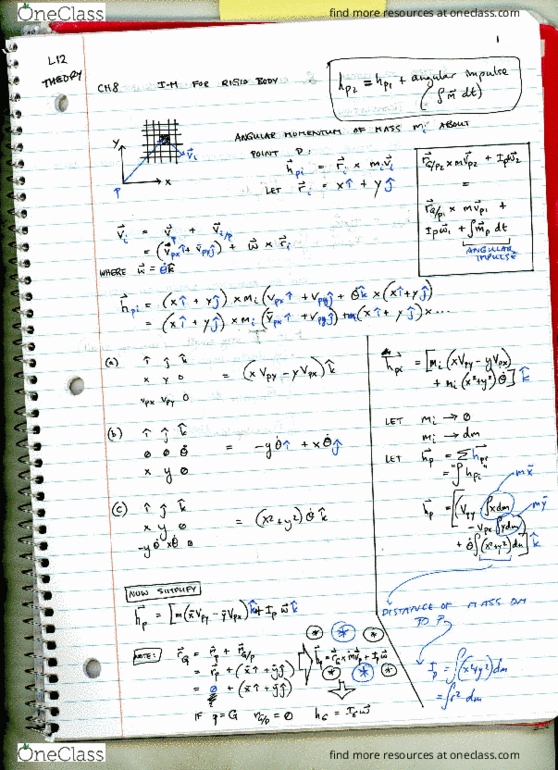 OneClass
find more resources at oneclass.com
1
L12
THEORY
CH8 I-M FOR RIGID BODY
h⃗p2 = h⃗p1 + angular impulse
(∫m⃗ dt)
ANGULAR MOMENTUM OF MASS mi ABOUT
POINT P:
h⃗pi = r⃗i × mi v⃗i
LET r⃗i = xî + yĵ
y
v⃗i
x
P
r⃗G/P2 × m v⃗p2 + Ipω⃗2
=
r⃗G/P1 × m v⃗p1 +
Ipω⃗1 + ∫m⃗p dt
ANGULAR
IMPULSE
v⃗i = v⃗p + v⃗i/p
= (v⃗pxî + v⃗pyĵ) + ω⃗ × r⃗i
WHERE ω⃗ = θ̇k̂
h⃗pi = (xî + yĵ) × mi (vpxî + vpyĵ + θ̇k̂ × (xî + yĵ)
= (xî + yĵ) × mi (v⃗pxî + vpyĵ) + mi (xî + yĵ) × ...
(a) î ĵ k̂
x y 0
vpx vpy 0
= (x vpy - y vpx) k̂
(b) î ĵ k̂
0 0 θ̇
x y 0
= -yθ̇î + xθ̇ĵ
(c) î ĵ k̂
x y 0
-yθ̇ xθ̇ 0
= (x²+y²) θ̇ k̂
h⃗pi = [mi (x vpy - y vpx)
+ mi (x²+y²) θ̇] k̂
LET mi → 0
mi → dm
LET h⃗p = Σ h⃗pi
= "∫ hpi"
mx̄
h⃗p = [(vpy ∫xdm)
mȳ
- vpx ∫ydm)
+ θ̇ ∫(x²+y²) dm] k̂
DISTANCE OF MASS DM
TO P
Ip = ∫(x²+y²) dm
= ∫r² dm
NOW SIMPLIFY
h⃗p = [m(x̄ vpy - ȳ vpx)k̂ + Ip ω⃗ k̂
NOTE:
r⃗G = r⃗p + r⃗G/p
= r⃗p + (x̄î + ȳĵ)
= 0 + (x̄î + ȳĵ)
h⃗p = r⃗G × m v⃗p + Ipω⃗
IF P = G rG/p = 0 hG = IGω⃗
OneClass
find more resources at oneclass.com